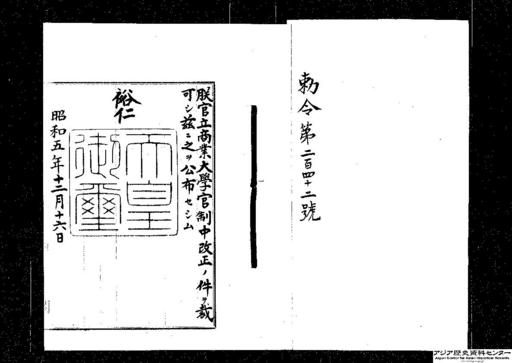 勅令第二百四十二號
朕官立商業大學官制中改正ノ件ヲ裁
可シ茲ニ之ヲ公布セシム
裕仁
天皇
御璽
昭和五年十二月十六日
アジア歴史資料センター
Japan Center for Asian Historical Records